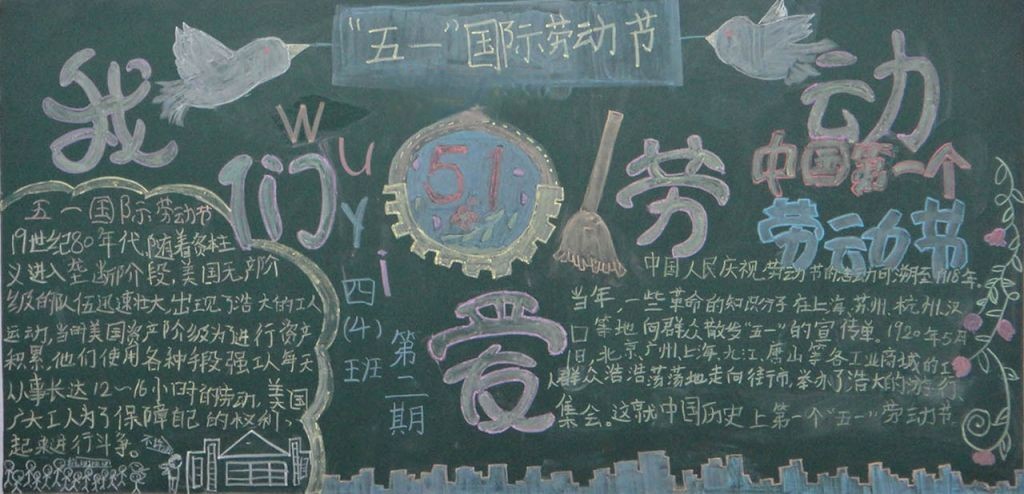 “五一”国际劳动节
我
们
爱
劳
动
wuyi
51
四
(4)
班
第二期
五一国际劳动节
19世纪80年代,随着资本主
义进入垄断阶段,美国无产阶
级的队伍迅速壮大,出现了浩大的工人
运动,当时美国资产阶级为了进行资产
积累,他们使用各种手段强工人每天
从事长达12~16小时的劳动,美国
广大工人为了保障自己的权利,
起来进行斗争。
中国第一个
劳动节
中国人民庆祝劳动节的活动可溯至1918年。
当年,一些革命的知识分子在上海、苏州、杭州、汉
口等地向群众散发“五一”的宣传单。1920年5月
1日,北京、广州、上海、九江、唐山等各工业商城的工
人群众浩浩荡荡地走向街市,举办了浩大的游行、
集会。这就中国历史上第一个“五一”劳动节